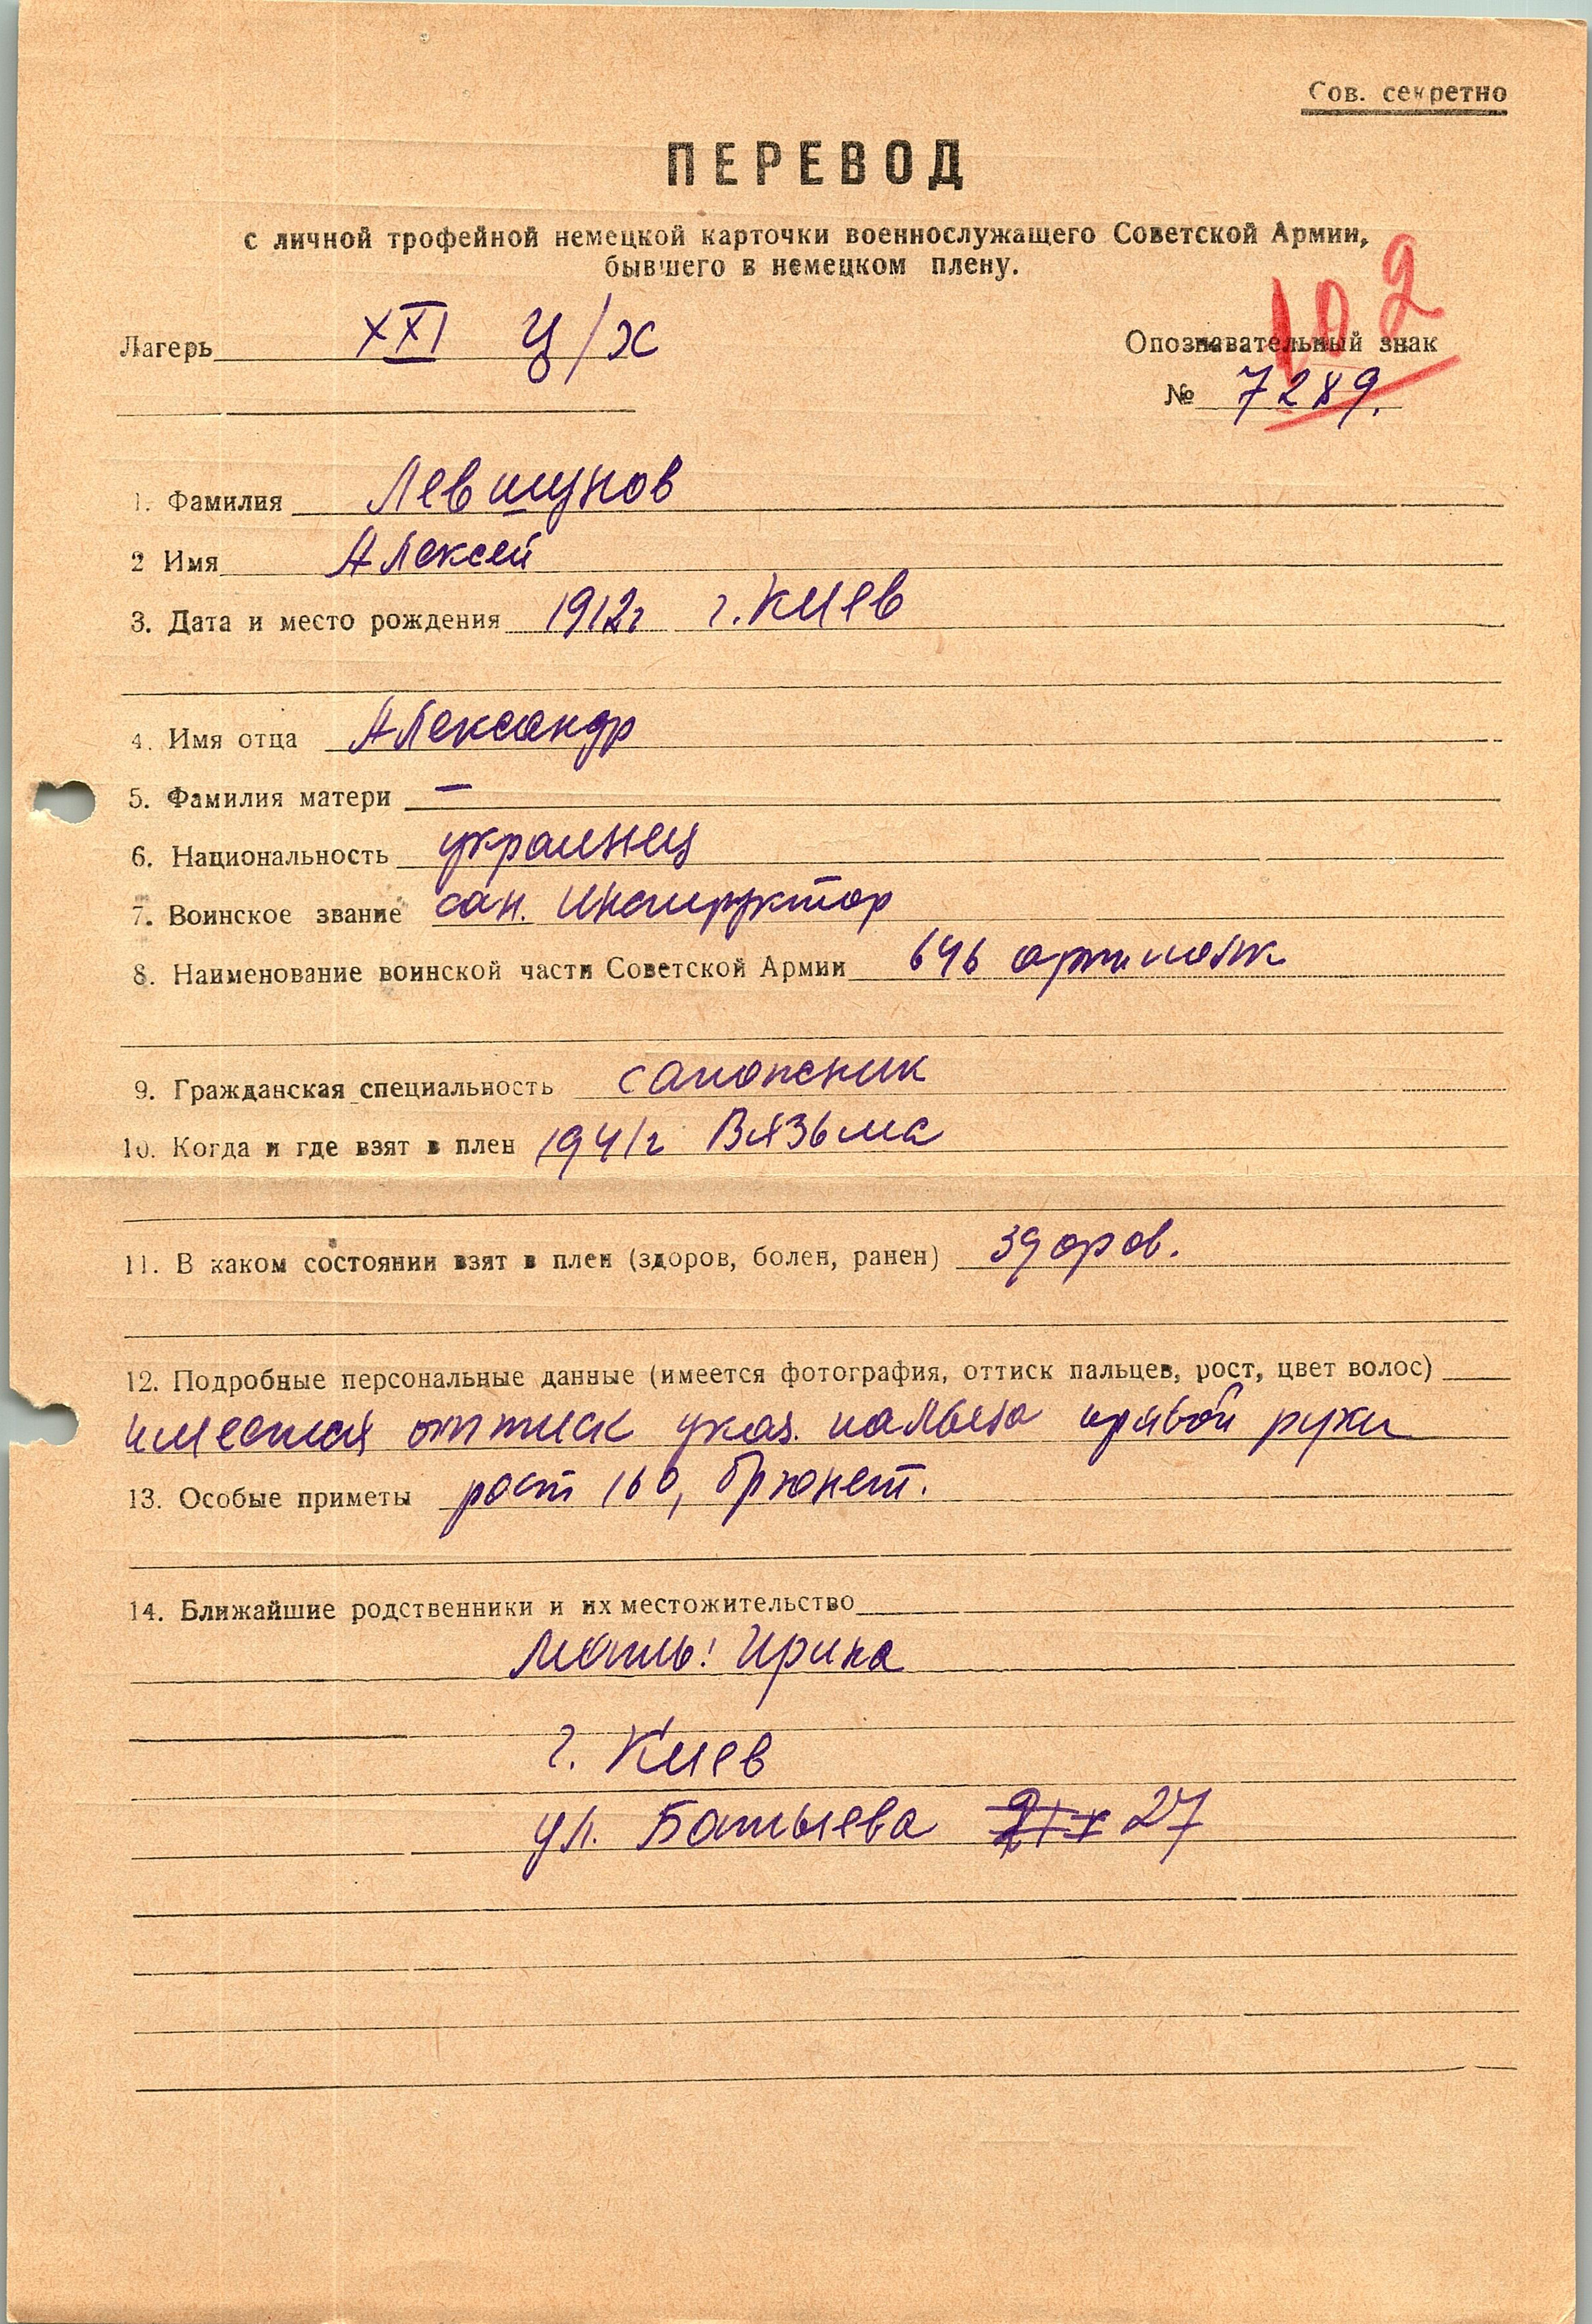 Сов. секретно
ПЕРЕВОД
с личной трофейной немецкой карточки военнослужащего Советской Армии,
бывшего в немецком плену.
102
Лагерь XXI Ц/Х
Опознавательный знак
№ 7289.
1. Фамилия Левшунов
2 Имя Алексей
3. Дата и место рождения 1912г г. Киев
4. Имя отца Александр
5. Фамилия матери —
6. Национальность украинец
7. Воинское звание сан. инструктор
8. Наименование воинской части Советской Армии 646 артполк
9. Гражданская специальность сапожник
10. Когда и где взят в плен 1941г Вязьма
11. В каком состоянии взят в плен (здоров, болен, ранен) здоров.
12. Подробные персональные данные (имеется фотография, оттиск пальцев, рост, цвет волос)
имеется оттиск указ. пальца правой руки
13. Особые приметы рост 160, брюнет.
14. Ближайшие родственники и их местожительство
Мать: Ирина
г. Киев
ул. Батыева 27